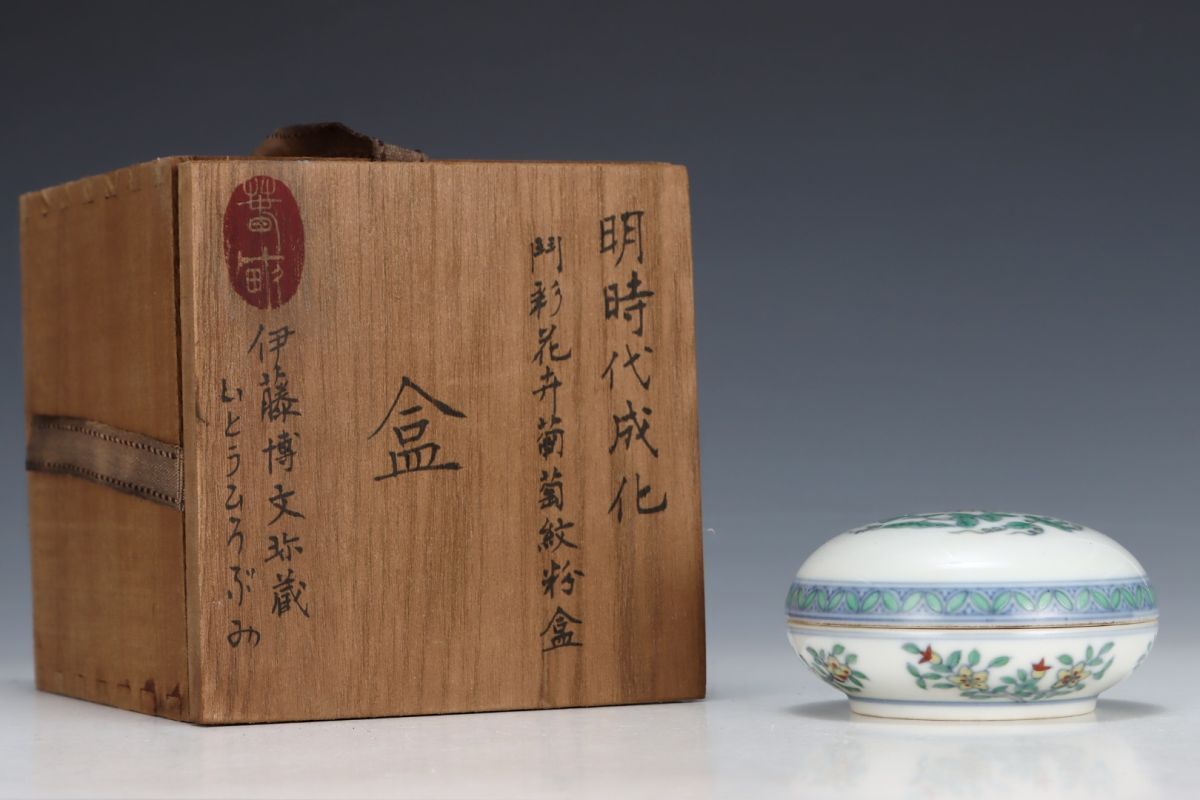 明時代成化
鬥彩花卉葡萄紋粉盒
盒
伊藤博文珎蔵
いとうひろぶみ